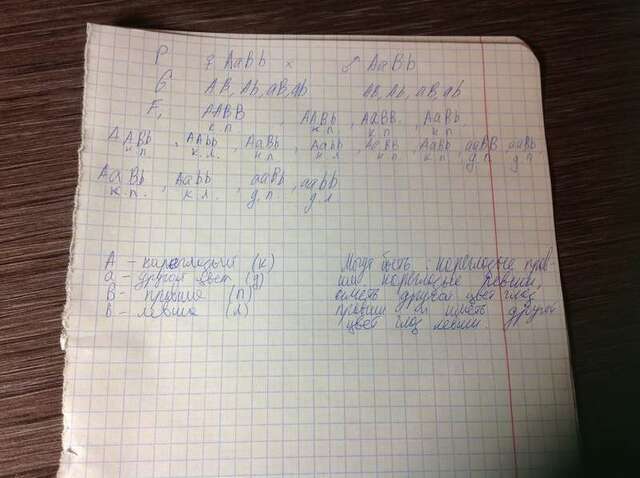 P ♀ AaBb × ♂ AaBb
G AB, Ab, aB, ab AB, Ab, aB, ab
F₁ AABB, AABb, AaBB, AaBb,
к.п. к.п. к.п. к.п.
AABb, AAbb, AaBb, Aabb, AaBB, AaBb, aaBB, aaBb,
к.п. к.л. к.п. к.л. к.п. к.п. д.п. д.п.
AaBb, Aabb, aaBb, aabb
к.п. к.л. д.п. д.л
A - кареглазый (к)
a - другой цвет (д)
B - правша (п)
b - левша (л)
Могут быть: кареглазые прав-
ши кареглазые левши,
иметь другой цвет глаз
правши и иметь другой
цвет глаз левши.